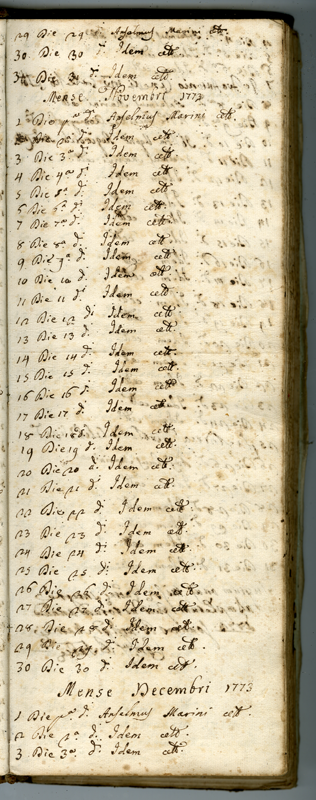 29 Die 29 Anselmus Marini cett.
30. Die 30 d.i Idem cett.
31. Die 31 d.i Idem cett.
Mense Novembri 1773
1 Die pma d.i Anselmus Marini cett.
2 Die 2da d.i Idem cett.
3 Die 3a d.i Idem cett.
4 Die 4ta d.i Idem cett.
5 Die 5ta d.i Idem cett.
6 Die 6ta d.i Idem cett.
7 Die 7ma d.i Idem cett.
8 Die 8va d.i Idem cett.
9 Die 9a d.i Idem cett.
10 Die 10 d.i Idem cett.
11 Die 11 d.i Idem cett.
12 Die 12 d.i Idem cett.
13 Die 13 d.i Idem cett.
14 Die 14 d.i Idem cett.
15 Die 15 d.i Idem cett.
16 Die 16 d.i Idem cett.
17 Die 17 d.i Idem cett.
18 Die 18 d.i Idem cett.
19 Die 19 d.i Idem cett.
20 Die 20 d.i Idem cett.
21 Die 21 d.i Idem cett.
22 Die 22 d.i Idem cett.
23 Die 23 d.i Idem cett.
24 Die 24 d.i Idem cett.
25 Die 25 d.i Idem cett.
26 Die 26 d.i Idem cett.
27 Die 27 d.i Idem cett.
28 Die 28 d.i Idem cett.
29 Die 29 d.i Idem cett.
30 Die 30 d.i Idem cett.
Mense Decembri 1773
1 Die pa d.i Anselmus Marini cett.
2 Die 2a d.i Idem cett.
3 Die 3a d.i Idem cett.